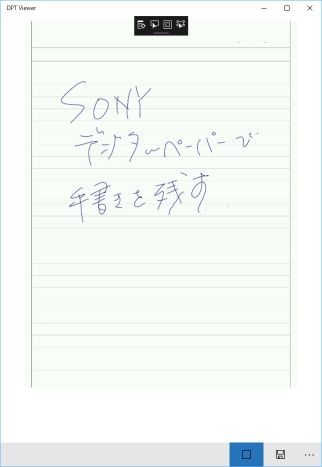 DPT Viewer
SONY
デジタルペーパーで
手書きを残す